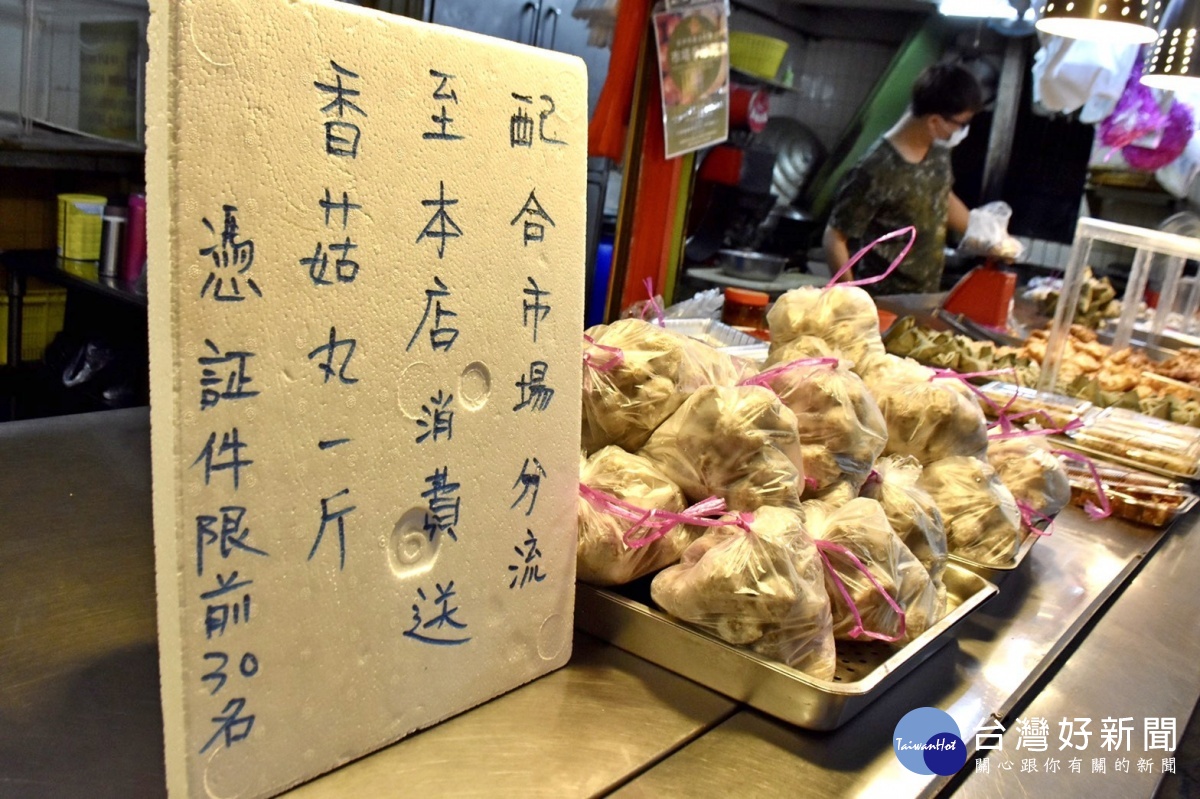 配合市場分流
至本店消費送
香菇丸一斤
憑證件限前30名
TaiwanHot
台灣好新聞
關心跟你有關的新聞